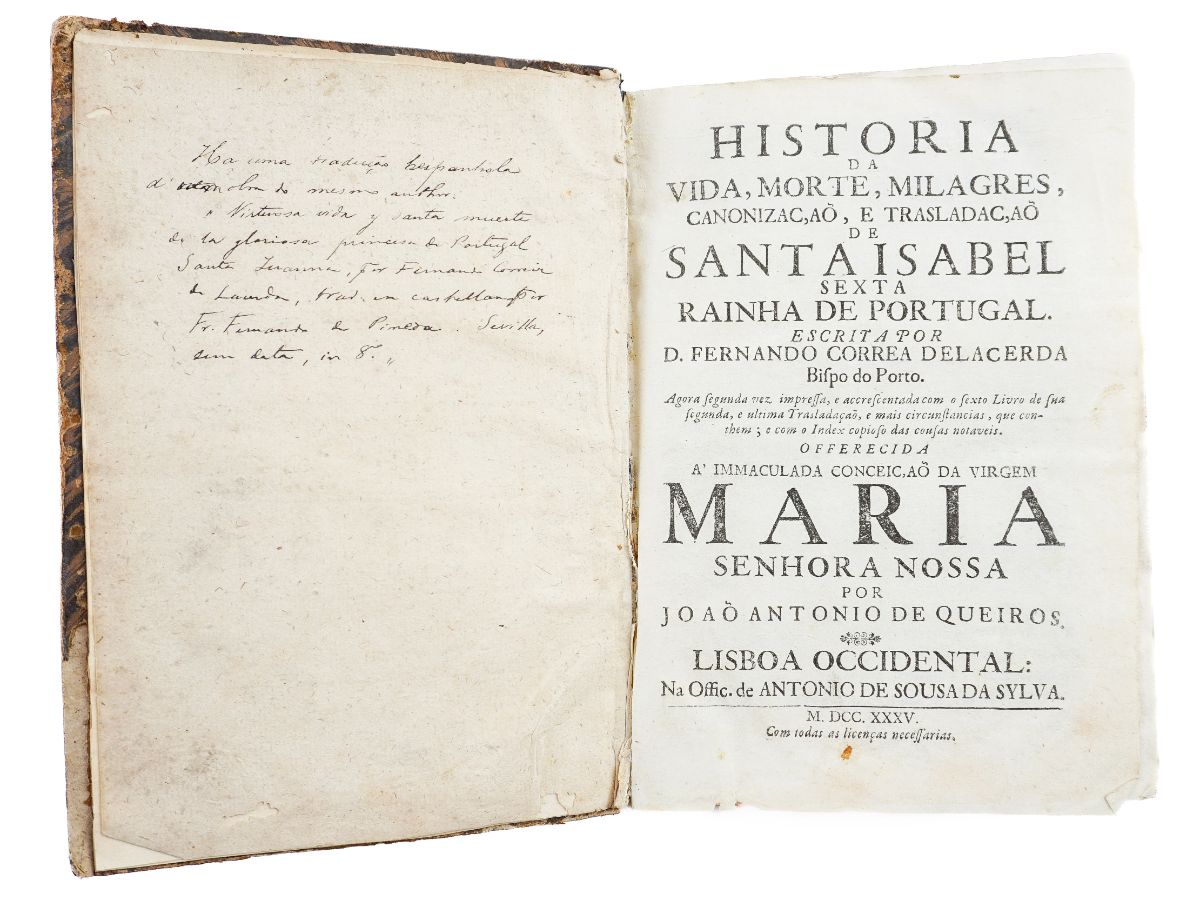 Ha uma traducção hespanhola
d' obra do mesmo author:
" Virtuosa vida y santa muerte
de la gloriosa princesa de Portugal
Santa Juanna, por Fernando Correia
de Lacerda, trad. en castellano por
Fr. Fernando de Pineda. Sevilla,
sem data, in 8º. "
HISTORIA
DA
VIDA, MORTE, MILAGRES,
CANONIZAC,AÕ, E TRASLADAC,AÕ
DE
SANTA ISABEL
SEXTA
RAINHA DE PORTUGAL.
ESCRITA POR
D. FERNANDO CORREA DELACERDA
Biſpo do Porto.
Agora ſegunda vez impreſſa, e accreſcentada com o ſexto Livro de ſua
ſegunda, e ultima Trasladaçaõ, e mais circunſtancias, que con-
them; e com o Index copioſo das couſas notaveis.
OFFERECIDA
A' IMMACULADA CONCEIC,AÕ DA VIRGEM
MARIA
SENHORA NOSSA
POR
JOAÕ ANTONIO DE QUEIROS.
LISBOA OCCIDENTAL:
Na Offic. de ANTONIO DE SOUSA DA SYLVA.
M. DCC. XXXV.
Com todas as licenças neceſſarias.